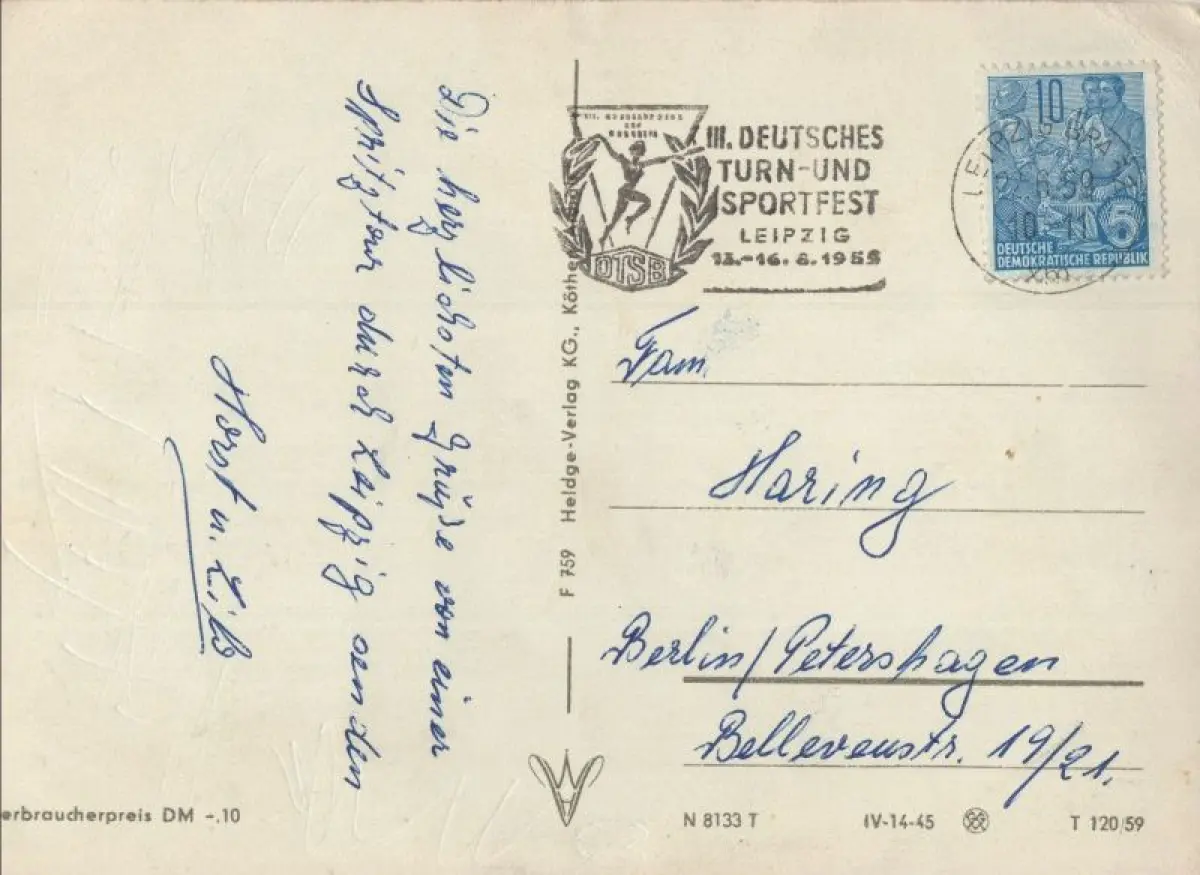 Die herzlichsten Grüße von einer
Spritztour durch Leipzig senden
Horst u. Lilo
III. DEUTSCHES
TURN-UND
SPORTFEST
LEIPZIG
13.-16.8.1959
DTSB
LEIPZIG
6.59
10
DEUTSCHE
DEMOKRATISCHE REPUBLIK
5
Fam.
Haring
Berlin/Petershagen
Bellevuestr. 19/21.
F 759 Heldge-Verlag KG., Köthen
erbraucherpreis DM -.10
N 8133 T
IV-14-45
T 120/59